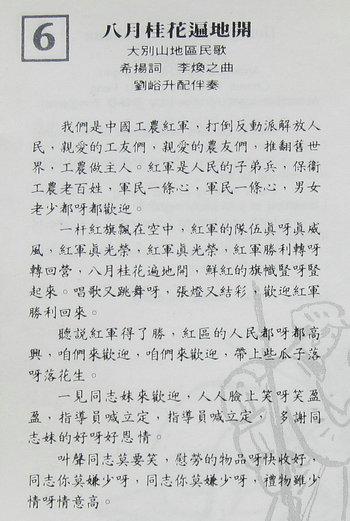 6
八月桂花遍地開
大別山地區民歌
希揚詞 李煥之曲
劉峪升配伴奏
我們是中國工農紅軍，打倒反動派解放人
民，親愛的工友們，親愛的農友們，推翻舊世
界，工農做主人。紅軍是人民的子弟兵，保衛
工農老百姓，軍民一條心，軍民一條心，男女
老少都呀都歡迎。
一杆紅旗飄在空中，紅軍的隊伍眞呀眞威
風，紅軍眞光榮，紅軍眞光榮，紅軍勝利轉呀
轉回營，八月桂花遍地開，鮮紅的旗幟豎呀豎
起來。唱歌又跳舞呀，張燈又結彩，歡迎紅軍
勝利回來。
聽說紅軍得了勝，紅區的人民都呀都高
興，咱們來歡迎，咱們來歡迎，帶上些瓜子落
呀落花生。
一見同志妹來歡迎，人人臉上笑呀笑盈
盈，指導員喊立定，指導員喊立定，多謝同
志妹的好呀好恩情。
叫聲同志莫要笑，慰勞的物品呀快收好，
同志你莫嫌少呀，同志你莫嫌少呀，禮物雖少
情呀情意高。